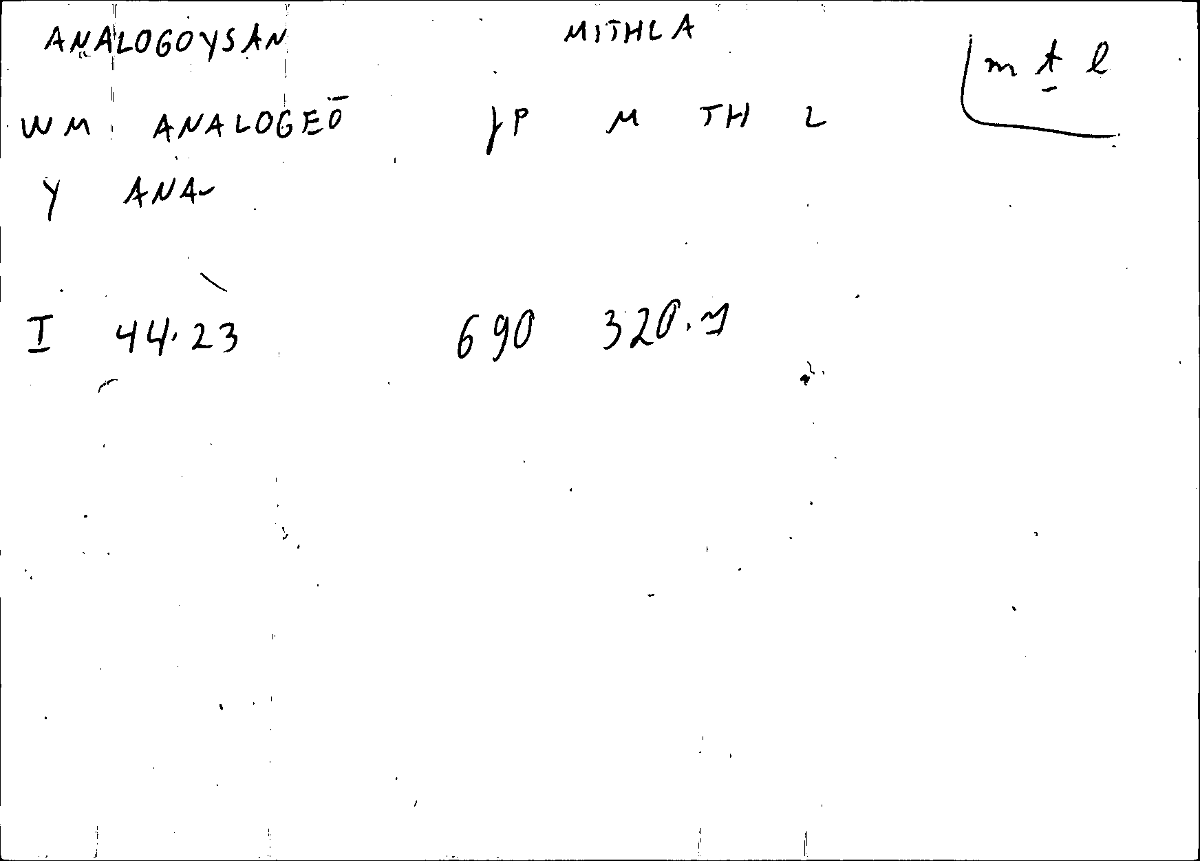 ANALOGOYSAN MITHLA m ṯ l
WM ANALOGEŌ P M TH L
Y ANA-
I 44.23 690 320.